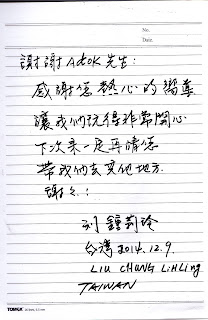 No.
Date.
謝謝 Adok 先生:
感謝您熱心的嚮導
讓我們玩得非常開心
下次來一定再請您
帶我們去其他地方.
謝々:
刘鍾莉玲
台灣 2014.12.9.
LIU CHUNG LiHLing
TAIWAN
TOMGX